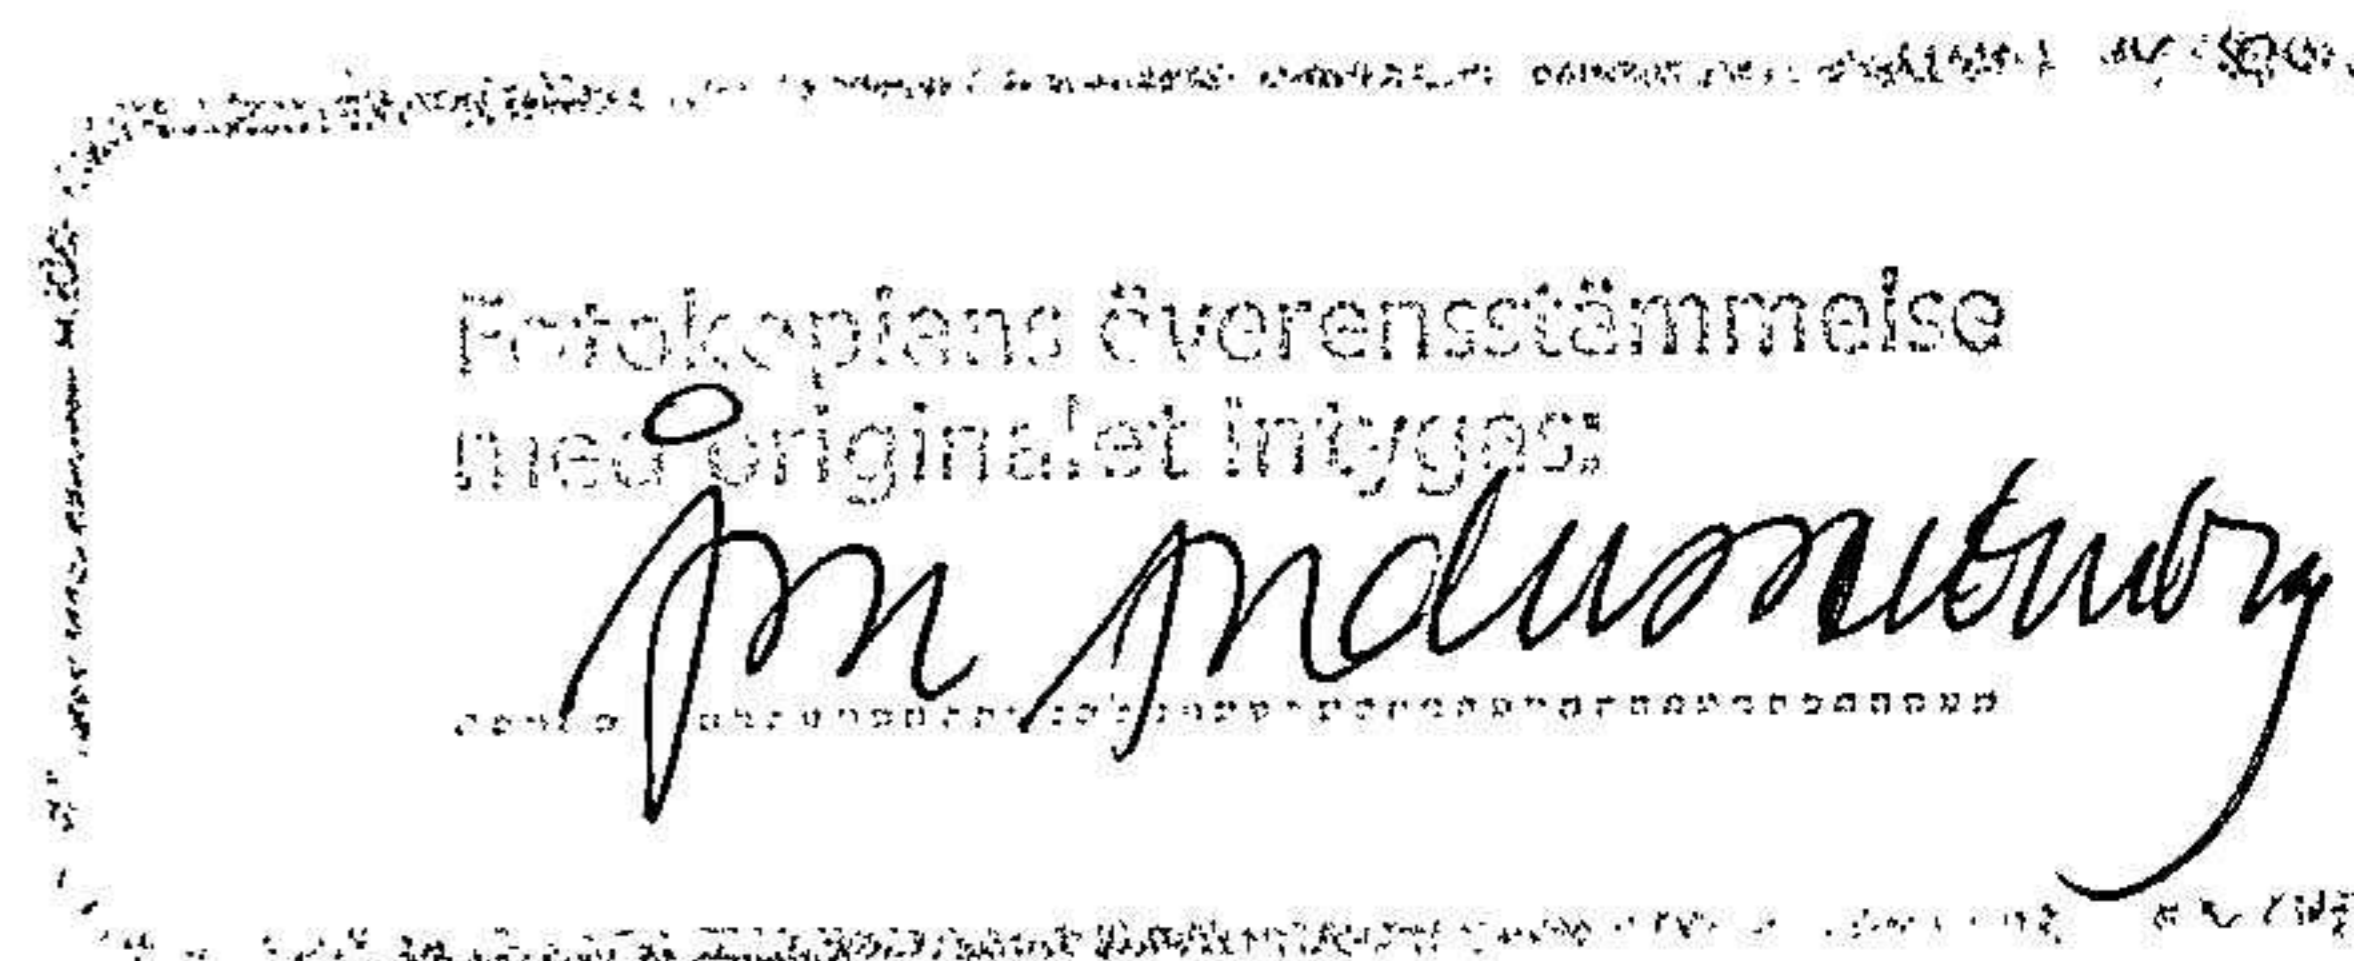 Fotokopiens överensstämmelse
med originalet intygas: